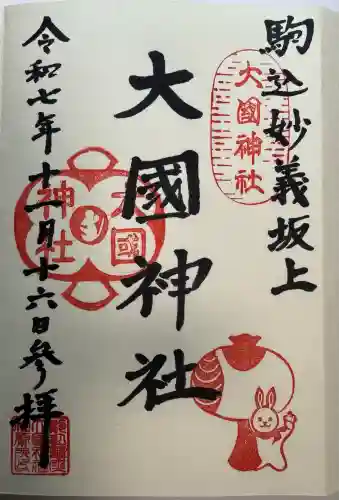 駒込妙義坂上
大國神社
大國神社
令和七年十一月十六日参拝
大國
神社